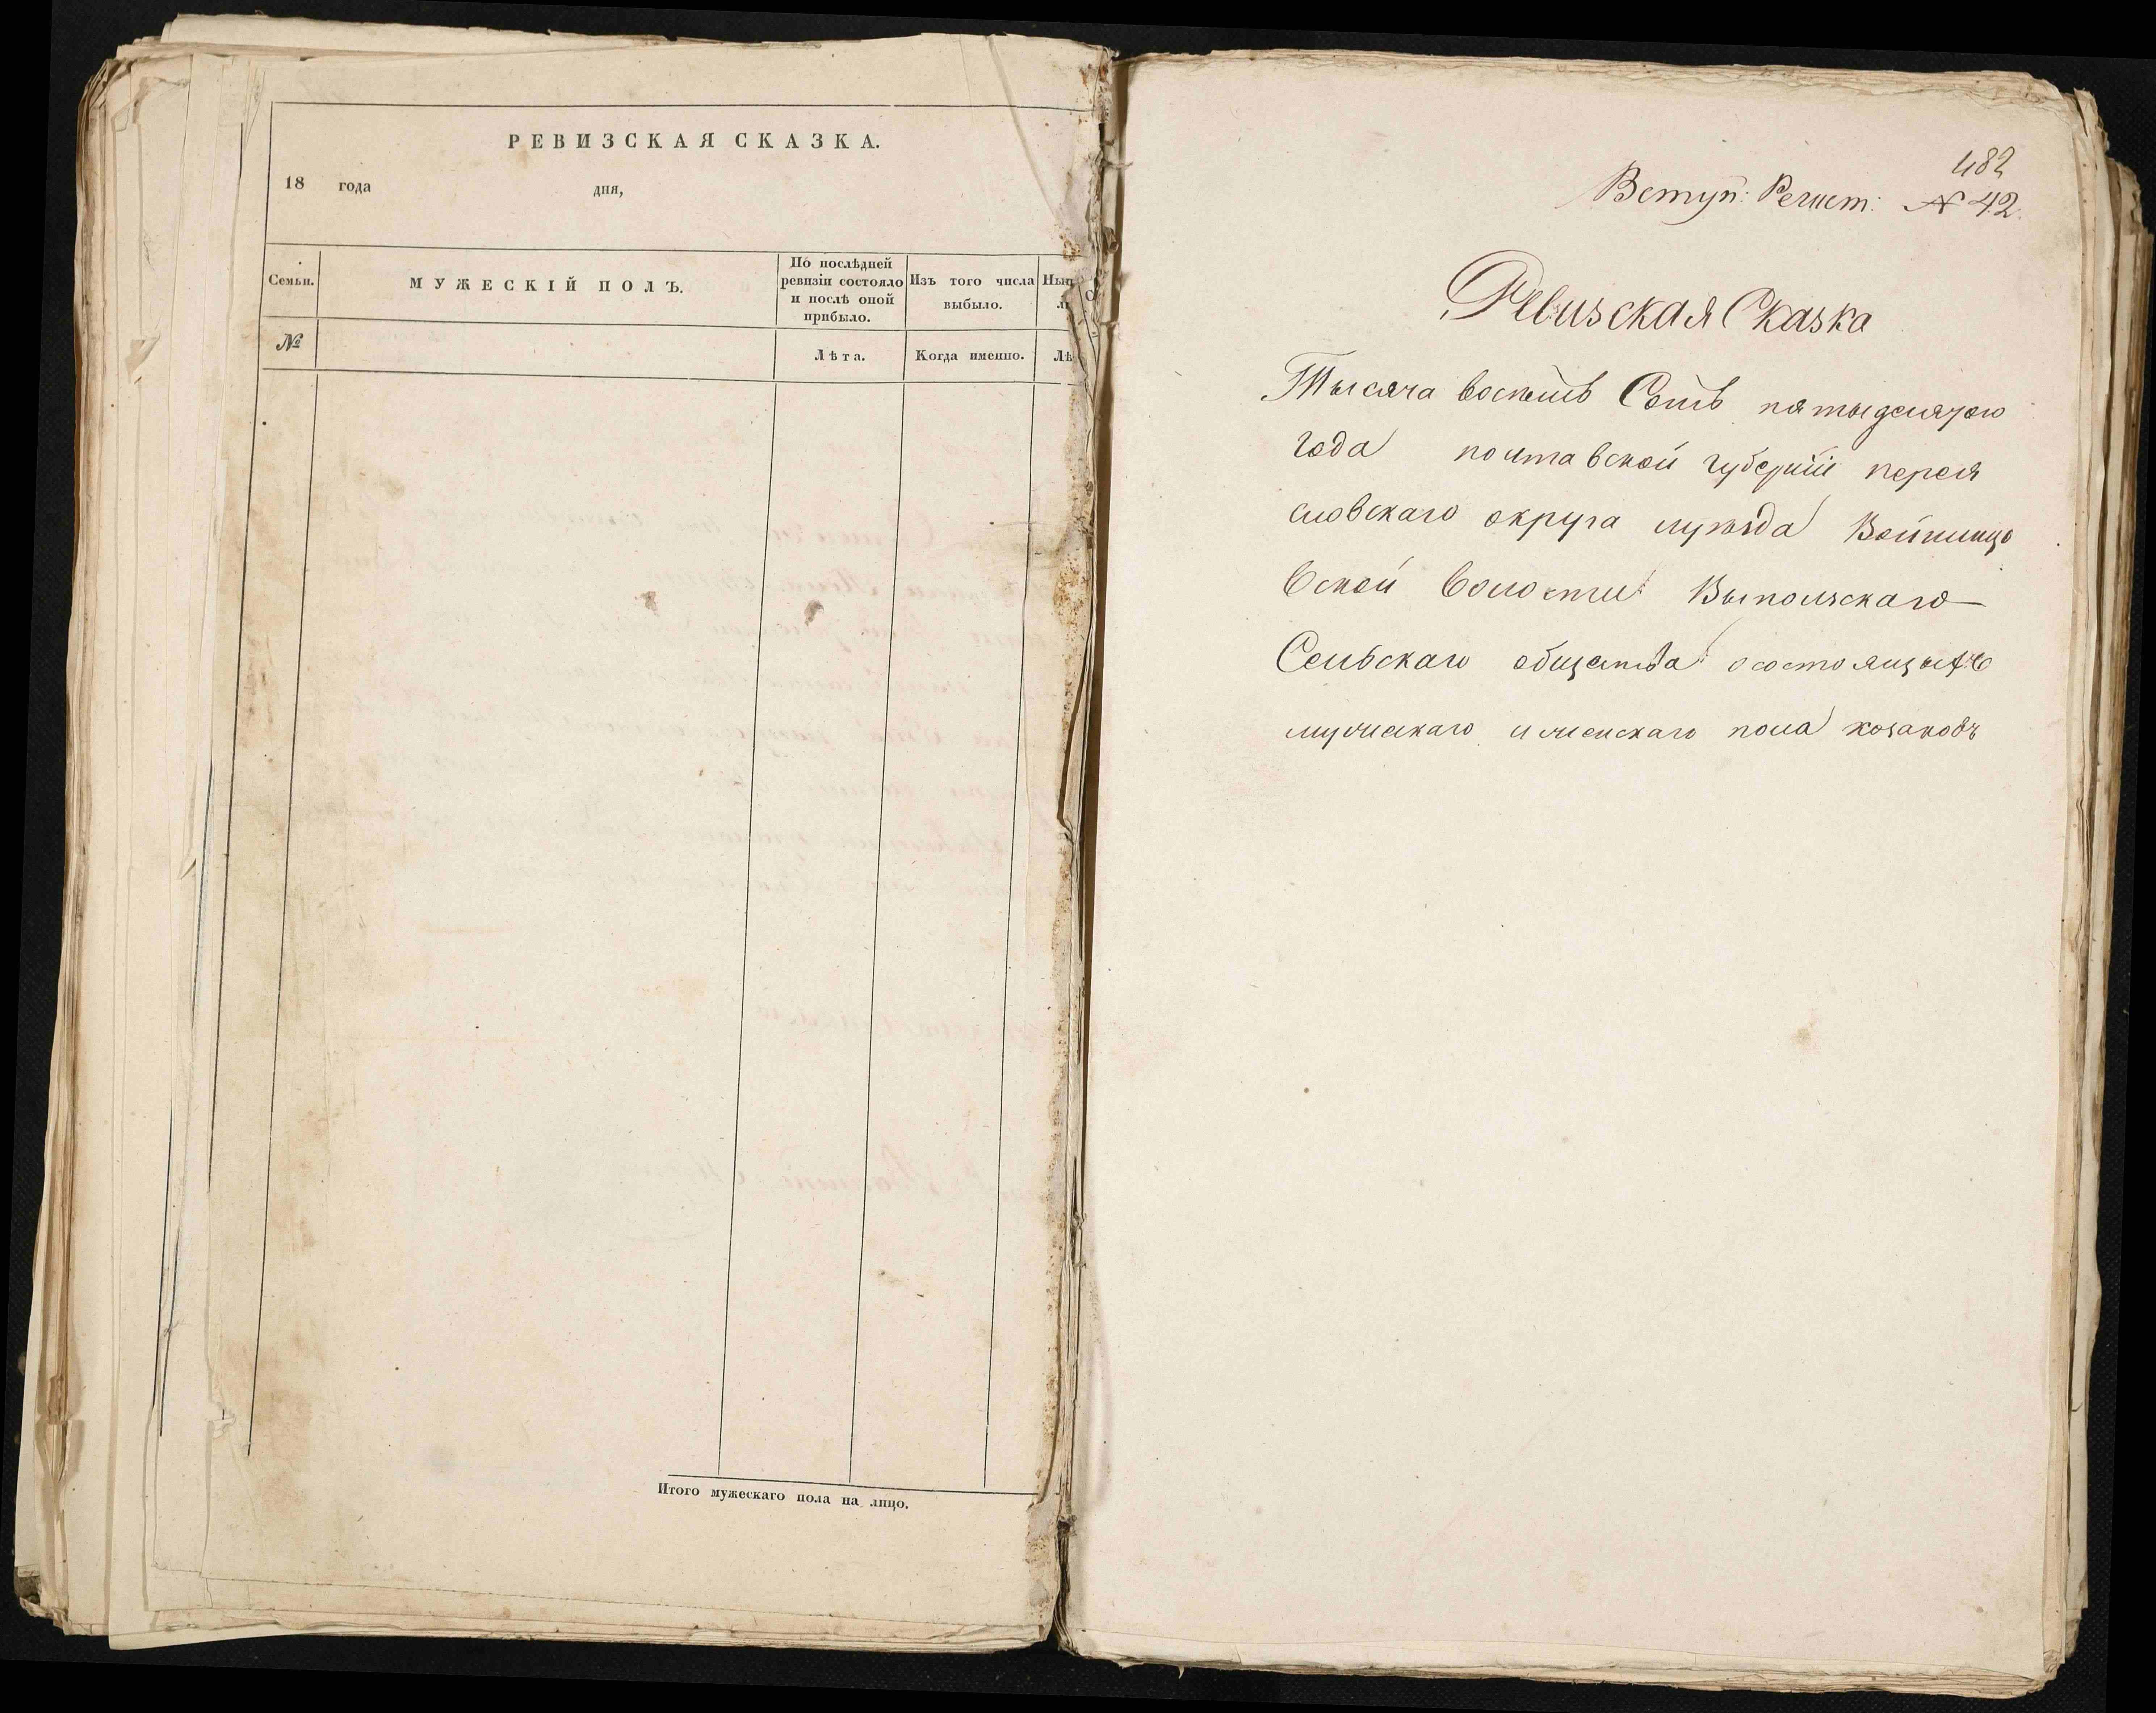 РЕВИЗСКАЯ СКАЗКА.
18 года дня,
Семьи.
МУЖЕСКІЙ ПОЛЪ.
По послѣдней
ревизіи состояло
и послѣ оной
прибыло.
Изъ того числа
выбыло.
Нын
№
Лѣта.
Когда именно.
Лѣ
Итого мужескаго пола на лицо.
482
Вступ: Регист: № 42.
Ревизская Сказка
Тысяча восемь Сотъ пятьдесятого
года полтавской губерніи перея
словскаго округа Войниц
вской волости Выпольскаго
Сельскаго общества о состоящихъ
мужескаго и женскаго пола козаковъ